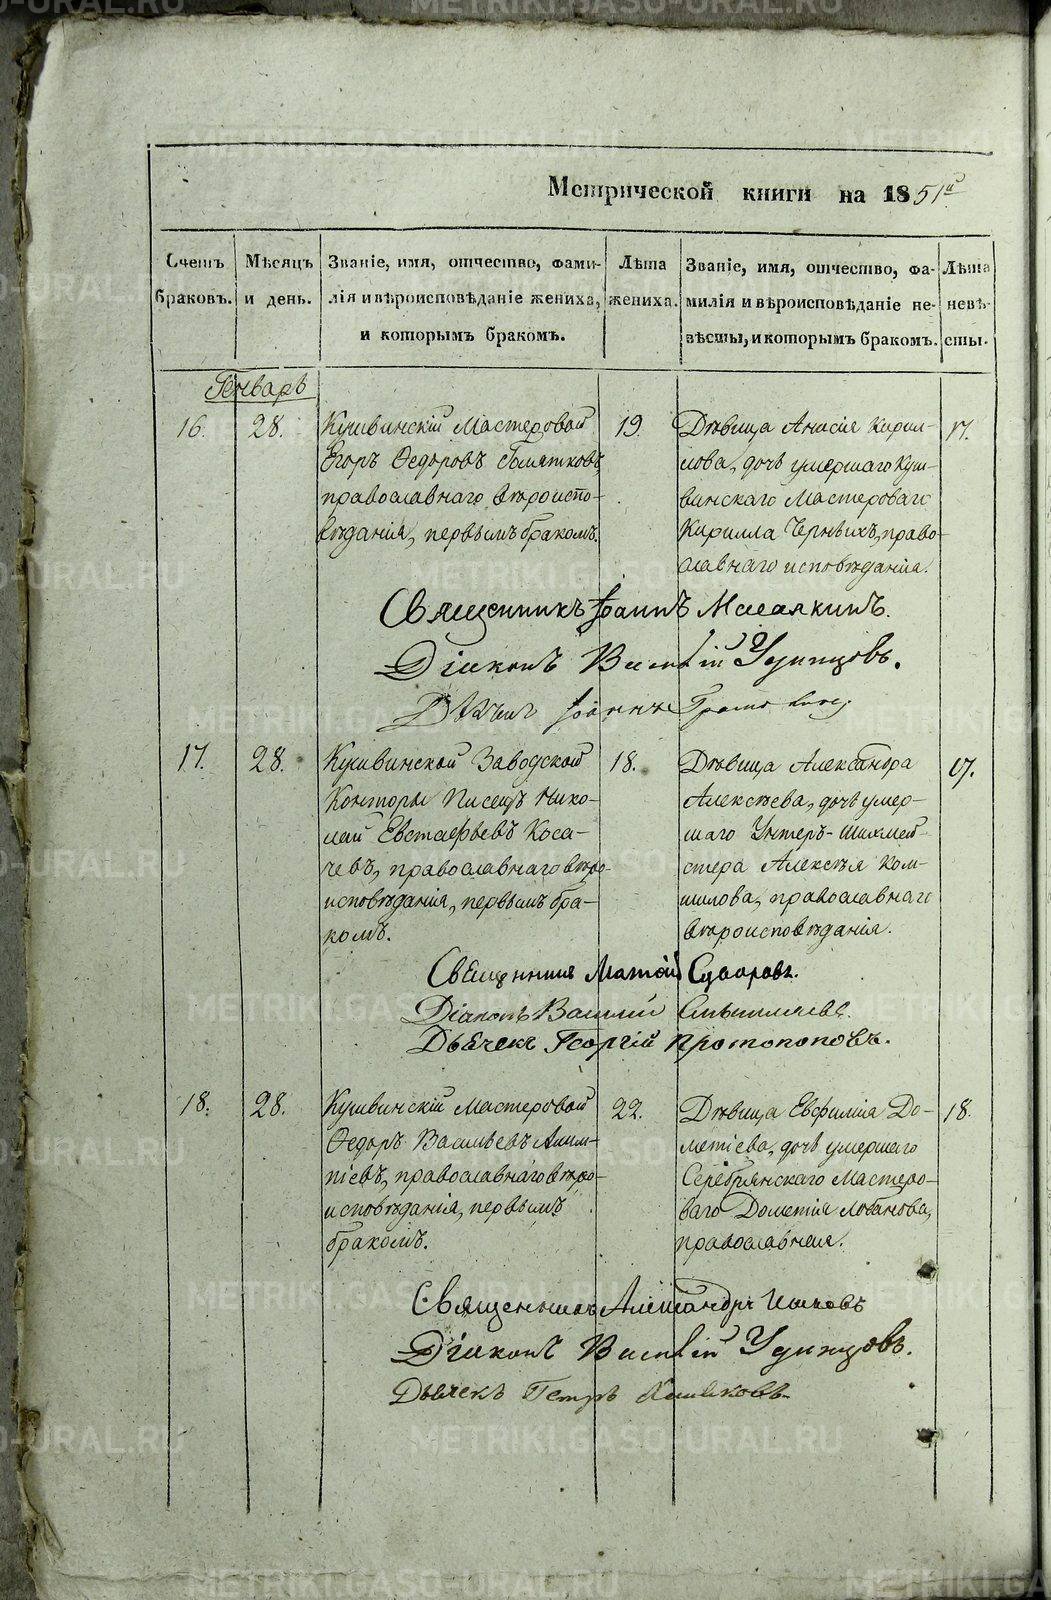 Метрической книги на 1851й
Счетъ браковъ.
Мѣсяцъ и день.
Званіе, имя, отчество, фами-
лія и вѣроисповѣданіе жениха,
и которымъ бракомъ.
Лѣта жениха.
Званіе, имя, отчество, фа-
милія и вѣроисповѣданіе не-
вѣсты, и которымъ бракомъ.
Лѣта невѣ-
сты.
Генварь
16.
28.
Кушвинскій Мастеровой
Егоръ Ѳедоровъ
православнаго вѣроиспо-
вѣданія, первымъ бракомъ.
19.
Дѣвица Анисія Кирил-
лова, дочь умершаго Куш-
винскаго Мастероваго
Кирилла Черныхъ, право-
славнаго исповѣданія.
17.
Священникъ Іоаннъ
Діаконъ Василій Удинцовъ.
Іоаннъ
17.
28.
Кушвинской Заводской
Конторы Писецъ Нико-
лай Евстафьевъ Коса-
чевъ, православнаго вѣро-
исповѣданія, первымъ бра-
комъ.
18.
Дѣвица Александра
Алексѣева, дочь умер-
шаго Унтеръ-шихмей-
стера Алексѣя Ком-
шилова, православнаго
вѣроисповѣданія.
17.
Священникъ Матѳій Суворовъ.
Діаконъ Василій
Дьячекъ Георгій Протопоповъ.
18.
28.
Кушвинскій Мастеровой
Ѳедоръ Васильевъ Алим-
піевъ, православнаго вѣро-
исповѣданія, первымъ
бракомъ.
22.
Дѣвица Евфимія До-
метіева, дочь умершаго
Серебрянскаго Мастеро-
ваго Дометія Лобанова,
православная.
18.
Священникъ Александръ
Діаконъ Василій Удинцовъ.
Дьячекъ Петръ
METRIKI.GASO-URAL.RU